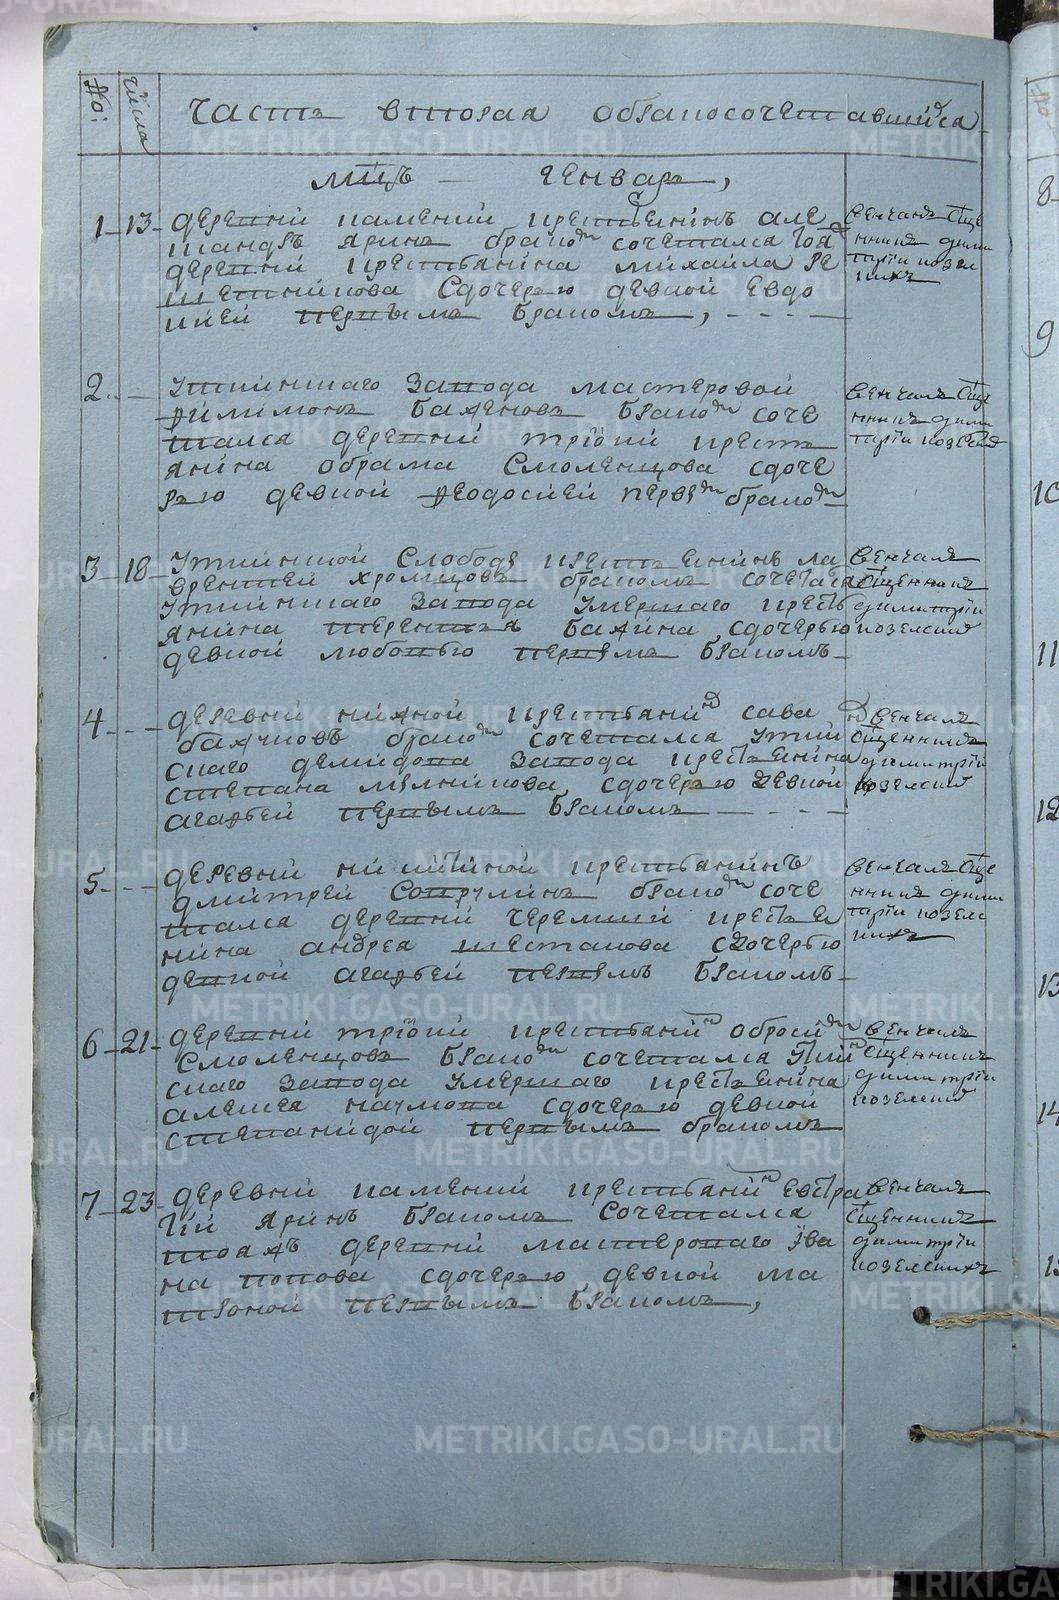 №: Числа
Часть вторая обрачосочетавшихся
Мцъ — Генваръ,
1 13 деревни каменки крестьенинъ але
браком сочетался тоя
деревни крестьянина михаила ре
шетникова сдочерью девкой евдо
кией первымъ бракомъ,
венчалъ сще
нникъ дими
трiи козел
скихъ
2 Уткинскаго завода мастеровой
филимонъ баженовъ браком соче
тался деревни трiоки крест
янина обрама Смоленцова сдоче
рью девкой феодосией первым браком
венчалъ сще
нникъ дими
трiи козелск
3 18 Уткинской Слободы крестьенинъ ла
врентей хромцовъ бракомъ сочетался
Уткинскаго завода умершаго кресть
янина терентья бажина сдочерью
девкой любовью первымъ бракомъ
венчалъ
сщенникъ
димитрiи
козелских
4 деревни нижной крестьянин сава
бажуковъ браком сочетался уткин
скаго демидова завода крестьенина
степана мелникова сдочерью девкой
агафьей первымъ бракомъ
венчалъ
сщенникъ
димитрiи
козелских
5 деревни крестьянинъ
дмитрей браком соче
тался деревни черемши крестье
нина андрея шестакова сдочерью
девкой агафьей первымъ бракомъ
венчалъ сще
нникъ дими
трiи козелс
кихъ
6 21 деревни трiоки крестьянин обросим
Смоленцовъ браком сочетался уткин
скаго завода умершаго крестьенина
алексея наумова сдочерью девкой
степанидой первымъ бракомъ
венчалъ
сщенникъ
димитрiи
козелских
7 23 деревни каменки крестьянин евстра
тiй яринъ бракомъ сочетался
тояжъ деревни мастероваго iва
на попова сдочерью девкой ма
троной первымъ бракомъ,
венчалъ
сщенникъ
димитрiи
козелскихъ
8
9
10
11
12
13
14
METRIKI.GASO-URAL.RU